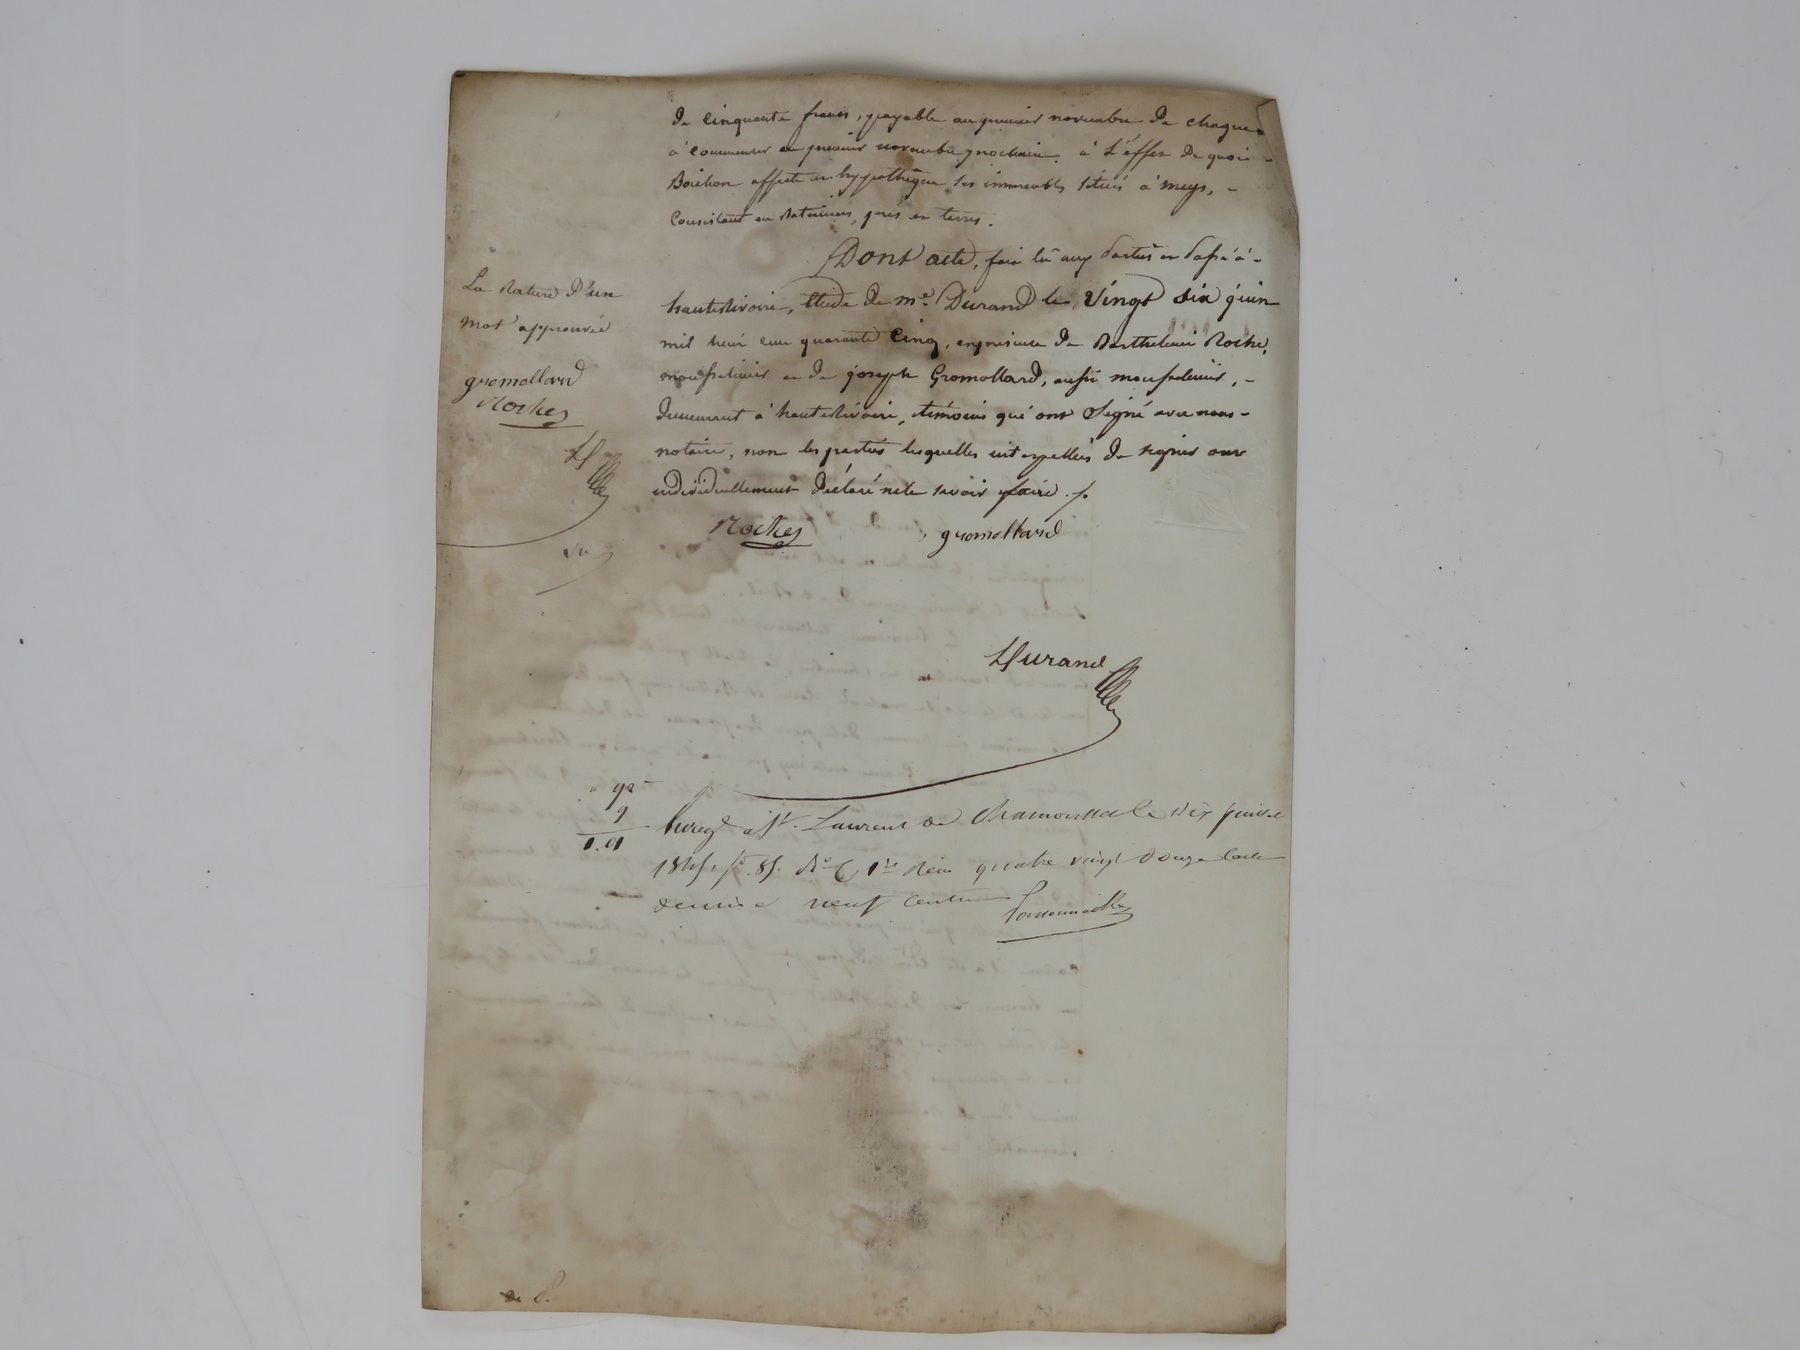 De cinquante francs, payable au premier novembre De chaque
à commencer au premier novembre prochain. à L'effet De quoi
Boichon affecte en hypothèque ses immeubles situés à meys, -
Consistant en Batimens, prés et terres.
Dont acte, fait lu aux parties et passé à -
hauterivoire, Etude De me. Durand le Vingt six juin
mil huit cent quarante Cinq, en présence De Barthelemi Roche,
mousselinier et De joseph Gromollard, aussi mousselinier, -
Demeurant à hauterivoire, témoins qui ont Signé avec nous -
notaire, non les parties lesquelles interpellées De signer ont
individuellement Déclaré ne le savoir faire ./.
La Rature D'un
mot approuvée
gromollard
Roches
Roches gromollard
Durand
92
9
1.01
Enregé à St. Laurent de Chamousset le Dix juillet
1845, fo. 85. Ro C 1re Reçu quatre vingt Douze
décime neuf centimes